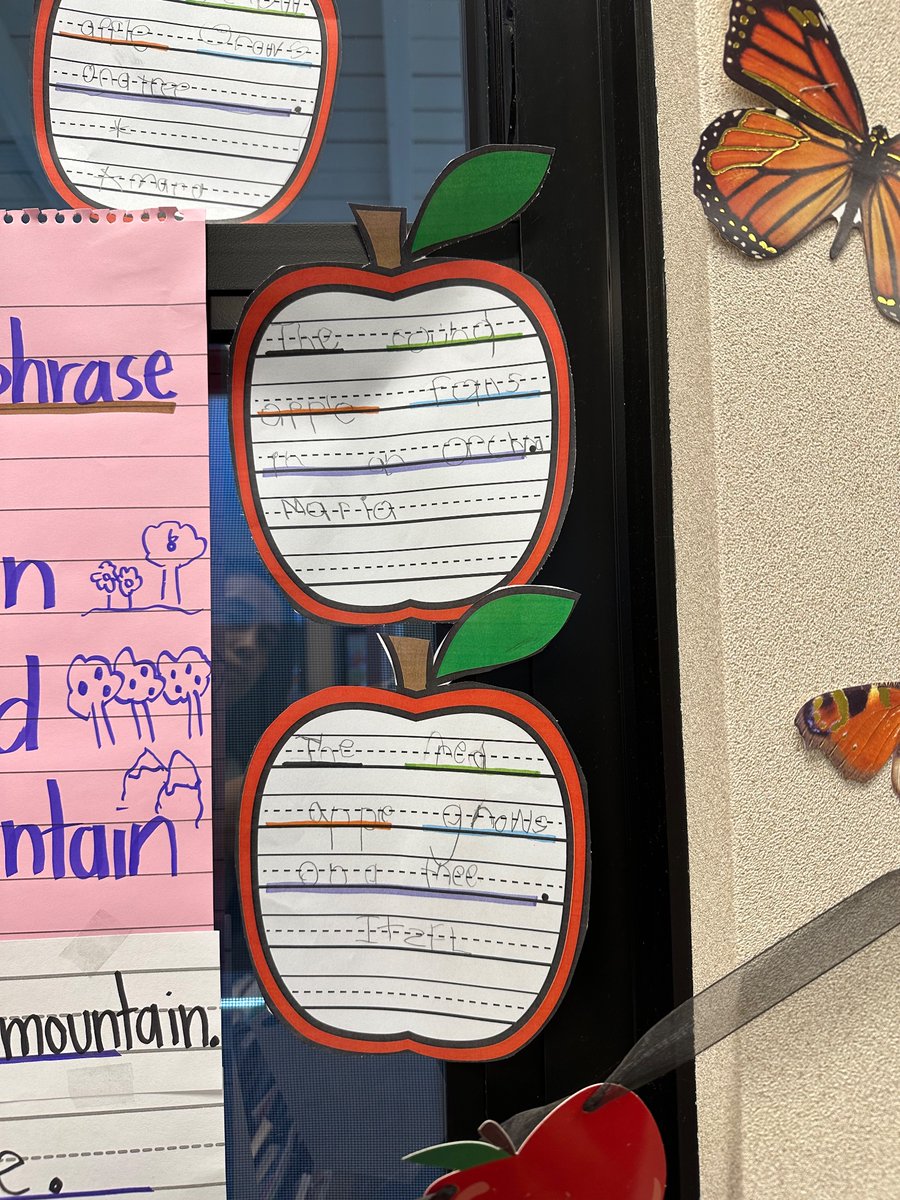 apple grows
on a tree
Amara
phrase
n
d
ntain
mountain.
e.
The round
apple fors
in an orchr.
Maria
The red
appe grows
on a tree.